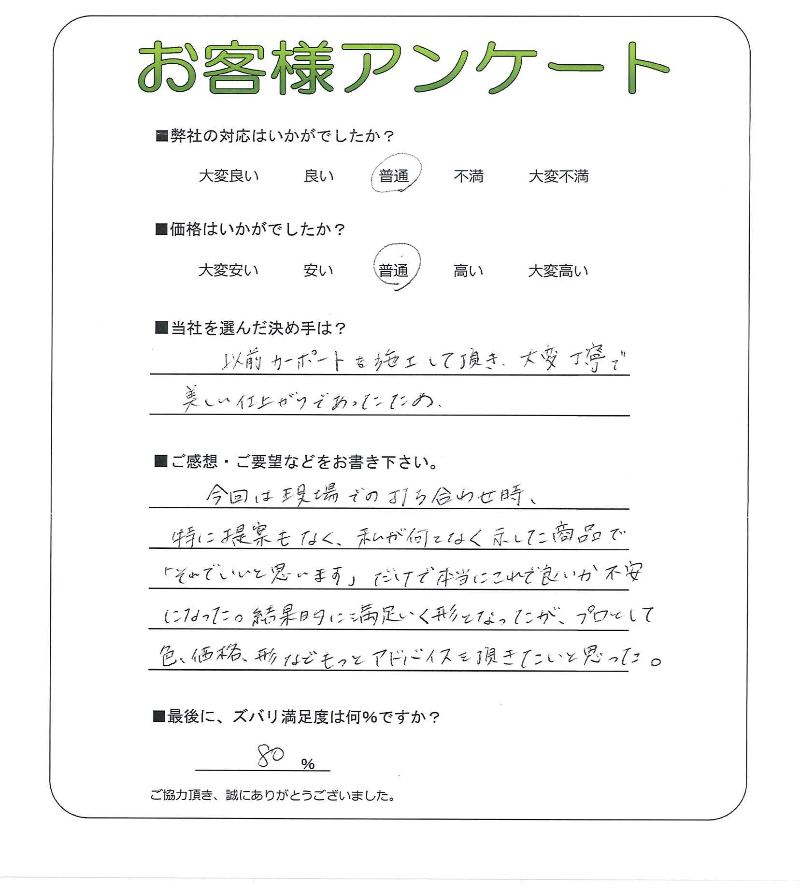 お客様アンケート
■弊社の対応はいかがでしたか？
大変良い 良い 普通 不満 大変不満
■価格はいかがでしたか？
大変安い 安い 普通 高い 大変高い
■当社を選んだ決め手は？
以前カーポートを施工して頂き、大変丁寧で
美しい仕上がりであったため、
■ご感想・ご要望などをお書き下さい。
今回は現場での打ち合わせ時、
特に提案もなく、私が何となく示した商品で
「それでいいと思います」だけで本当にこれで良いか不安
になった。結果的に満足いく形となったが、プロとして
色、価格、形などもっとアドバイスを頂きたいと思った。
■最後に、ズバリ満足度は何%ですか？
80 %
ご協力頂き、誠にありがとうございました。